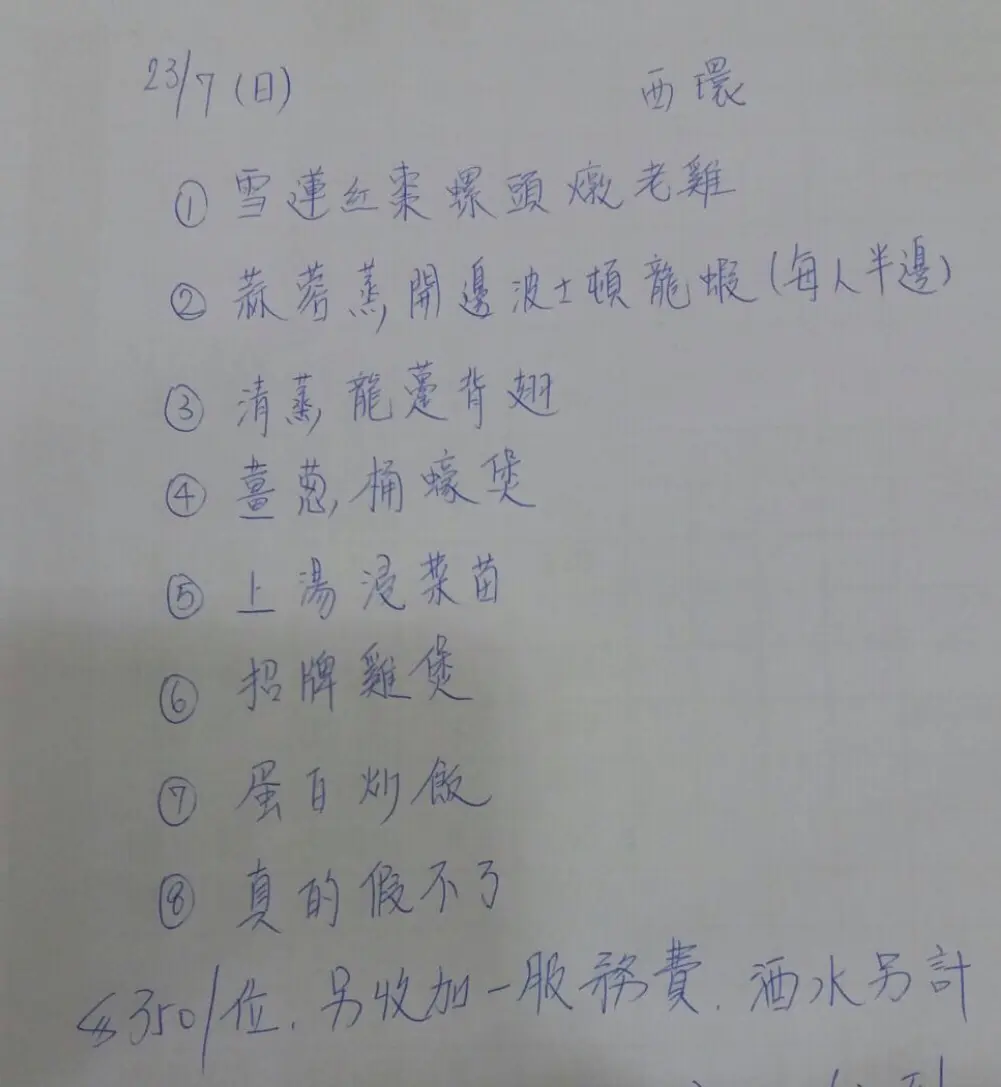 23/7 (日) 西環
① 雪蓮紅棗螺頭燉老雞
② 蒜蓉蒸開邊波士頓龍蝦 (每人半邊)
③ 清蒸龍躉背翅
④ 薑葱桶蠔煲
⑤ 上湯浸菜苗
⑥ 招牌雞煲
⑦ 蛋白炒飯
⑧ 真的假不了
$350/位. 另收加一服務費. 酒水另計